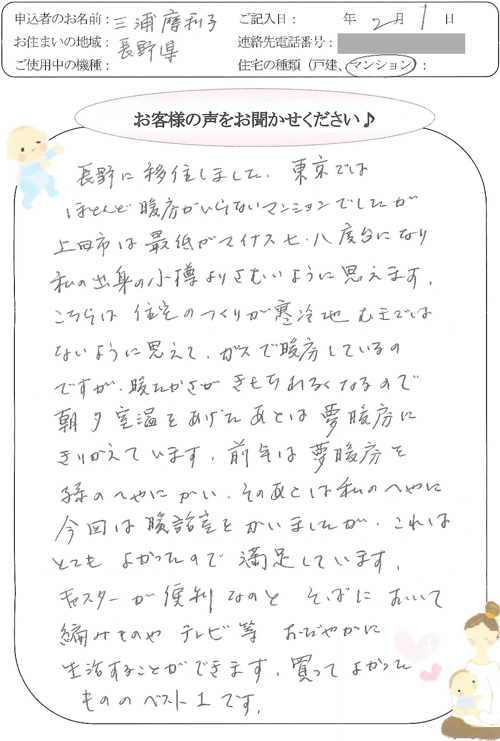 申込者のお名前：三浦摩利子 ご記入日： 年 2月 1日
お住まいの地域：長野県 連絡先電話番号：
ご使用中の機種： 住宅の種類（戸建、マンション）：
お客様の声をお聞かせください♪
長野に移住しました。東京では
ほとんど暖房がいらないマンションでしたが
上田市は最低がマイナス七・八度台になり
私の出身の小樽よりさむいように思えます。
こちらは住宅のつくりが寒冷地むきでは
ないように思えて、ガスで暖房しているの
ですが、暖たかさがきもちわるくなるので
朝夕室温をあげたあとは夢暖房に
きりかえています。前年は夢暖房を
孫のへやにかい、そのあとは私のへやに
今回は暖話室をかいましたが、これは
とても よかったので 満足しています。
キャスターが便利なのと そばにおいて
編みものや テレビ等 おだやかに
生活することができます。買ってよかった
もののベスト1です。